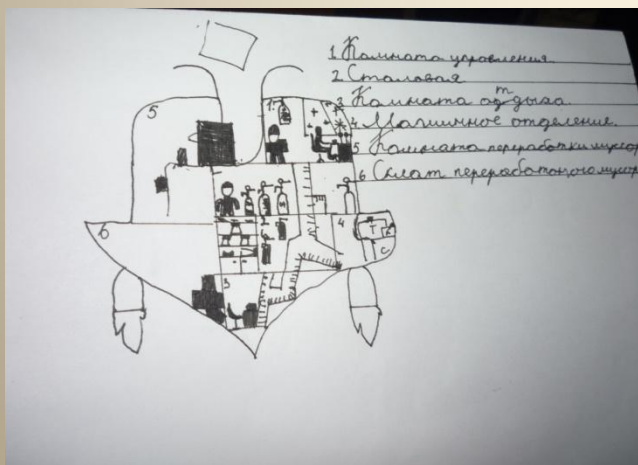 1. Комната управления
2 Столовая
3 Комната отдыха
4 Машинное отделение
5 Комната переработки мусор
6 Склат переработоного мусор
5
1.
6
4
T
C
3